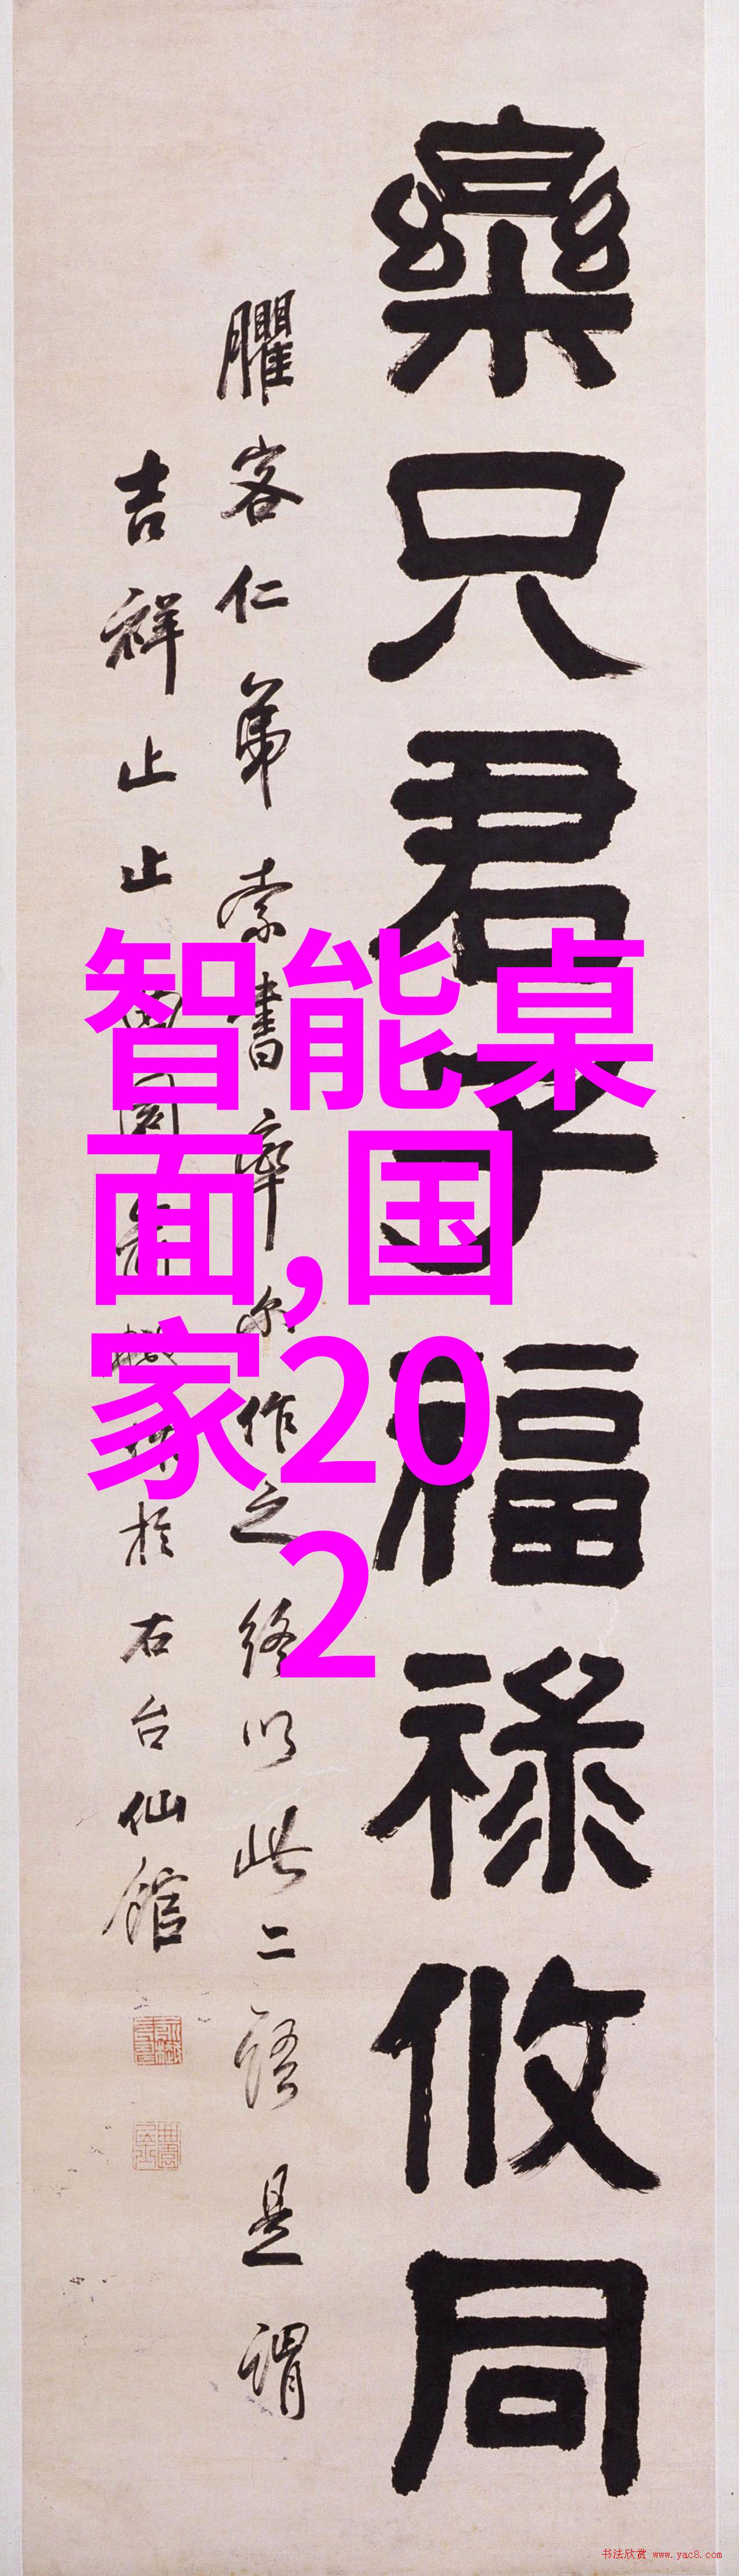 樂只君子福祿攸同
臞客仁弟索書率尔作之終以此二語是謂
吉祥止止
於右台仙館
智能桌
面,国
家20
2
书法欣赏 www.yac8.com